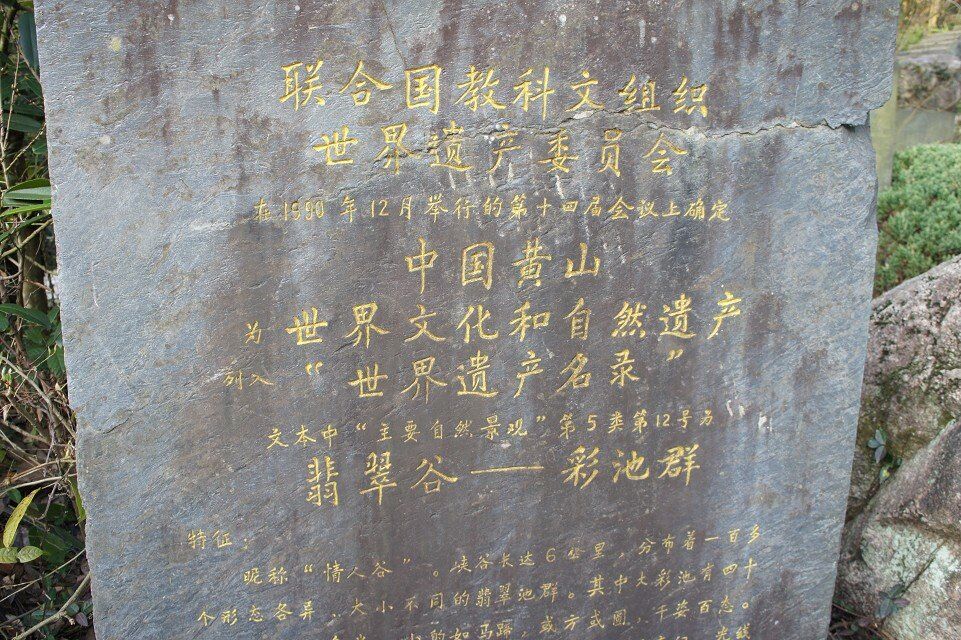 联合国教科文组织
世界遗产委员会
在1990年12月举行的第十四届会议上确定
中国黄山
为世界文化和自然遗产
列入“世界遗产名录”
文本中“主要自然景观”第5类第12号为
翡翠谷——彩池群
特征:
昵称“情人谷”。峡谷长达6公里,分布着一百多
个形态各异,大小不同的翡翠池群。其中大彩池有四十
的如马蹄,或方或圆,千姿百态。